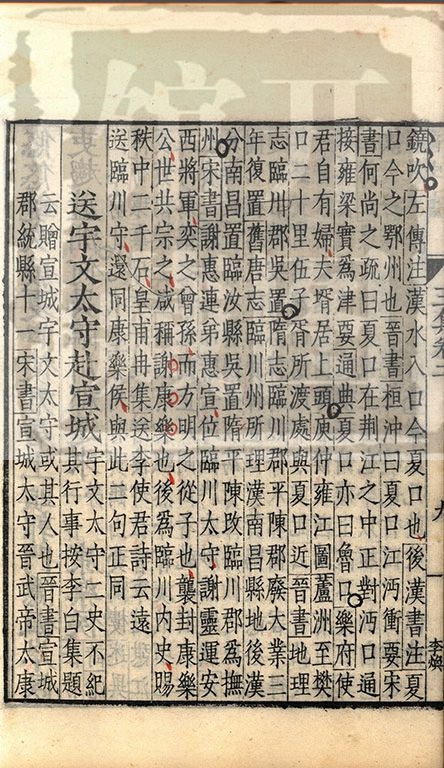 鐃吹左傳注漢水入口今夏口也後漢書注夏
口今之鄂州也晉書桓沖曰夏口江沔衝要宋
書何尚之疏曰夏口在荆江之中正對沔口通
接雍梁實為津要通典夏口亦曰魯口樂府使
君自有婦夫壻居上頭庾仲雍江圖蘆洲至樊
口二十里伍子胥所渡處與夏口近晉書地理
志臨川郡吳置隋志臨川郡平陳郡廢大業三
年復置舊唐志臨川州所理漢南昌縣地後漢
分南昌置臨汝縣吳置隋平陳改臨川郡為撫
州宋書謝惠運弟惠宣位臨川太守謝靈運安
西將軍奕之曾孫而方明之從子也襲封康樂
公世共宗之咸稱謝康樂也後為臨川内史賜
秩中二千石皇甫冉集送李使君詩云遠
送臨川守還同康樂侯與此二句正同
送宇文太守赴宣城
宇文太守二史不紀
其行事按李白集題
云贈宣城宇文太守或其人也晉書宣城
郡統縣十一宋書宣城太守晉武帝太康
九